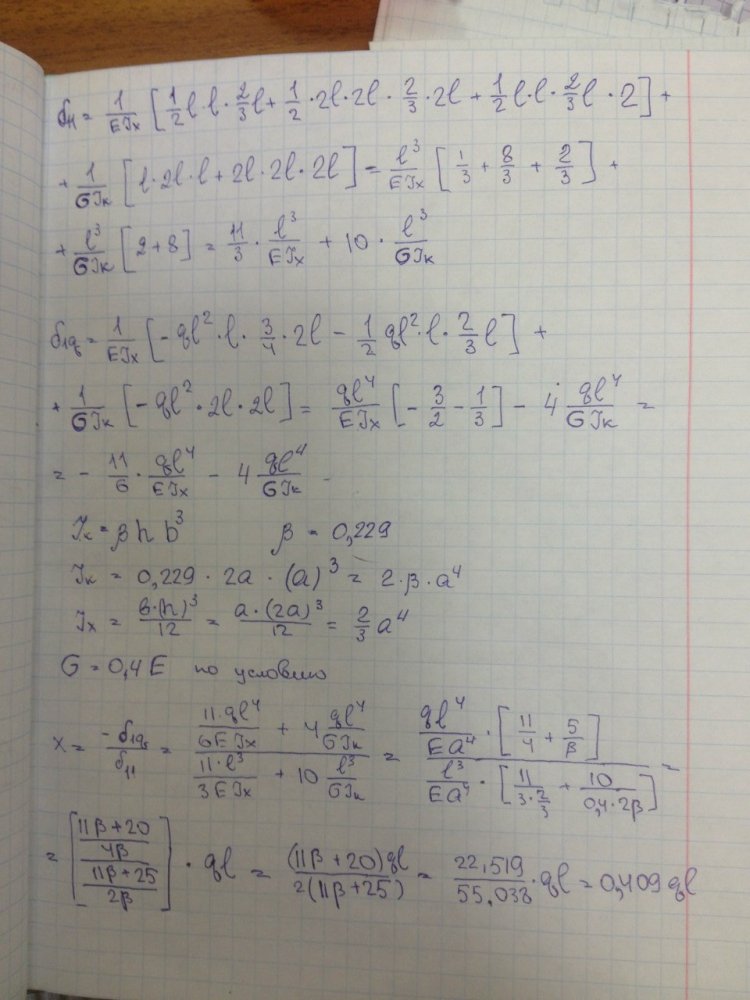 δ₁₁ = 1/EJx [1/2 l·l·2/3 l + 1/2·2l·2l·2/3·2l + 1/2 l·l·2/3 l·2] +
+ 1/GJк [l·2l·l + 2l·2l·2l] = l³/EJx [1/3 + 8/3 + 2/3] +
+ l³/GJк [2+8] = 11/3 · l³/EJx + 10 · l³/GJк
δ₁q = 1/EJx [-ql²·l·3/4·2l - 1/2 ql²·l·2/3 l] +
+ 1/GJк [-ql²·2l·2l] = ql⁴/EJx [-3/2 - 1/3] - 4 ql⁴/GJк =
= - 11/6 · ql⁴/EJx - 4 ql⁴/GJк
Jк = βhb³ β = 0,229
Jк = 0,229·2a·(a)³ = 2·β·a⁴
Jx = b·(h)³/12 = a·(2a)³/12 = 2/3 a⁴
G = 0,4E по условию
X = -δ₁q/δ₁₁ = (11·ql⁴/6EJx + 4 ql⁴/GJк)/(11·l³/3EJx + 10 l³/GJк) = (ql⁴/Ea⁴·[11/4 + 5/β])/(l³/Ea⁴·[11/(3·2/3) + 10/(0,4·2β)]) =
= [((11β+20)/4β)/((11β+25)/2β)]·ql = (11β+20)ql/2(11β+25) = 22,519/55,038·ql = 0,409ql